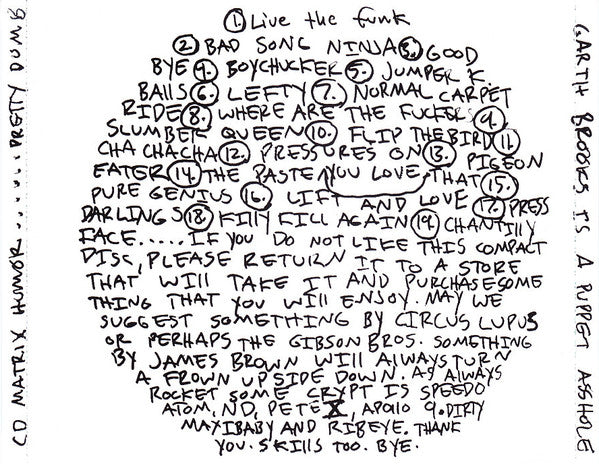 CD MATRIX HUMOR......PRETTY DUMB
1. Live the funk
2. BAD SONG NINJA 3. GOOD
BYE 4. BOYCHUCKER 5. JUMPER K.
BALLS 6. LEFTY 7. NORMAL CARPET
RIDE 8. WHERE ARE THE FUCKERS 9.
SLUMBER QUEEN 10. FLIP THE BIRD 11.
CHA CHA CHA 12. PRESSURES ON 13. PIGEON
EATER 14. THE PASTE YOU LOVE THAT 15.
PURE GENIUS 16. LIFT AND LOVE 17. PRESS
DARLINGS 18. KILLY KILL AGAIN 19. CHANTILLY
FACE..... IF YOU DO NOT LIKE THIS COMPACT
DISC, PLEASE RETURN IT TO A STORE
THAT WILL TAKE IT AND PURCHASE SOME
THING THAT YOU WILL ENJOY. MAY WE
SUGGEST SOMETHING BY CIRCUS LUPUS
OR PERHAPS THE GIBSON BROS. SOMETHING
BY JAMES BROWN WILL ALWAYS TURN
A FROWN UPSIDE DOWN. AS ALWAYS
ROCKET SOME CRYPT IS SPEEDO
ATOM, ND, PETE X, APOLLO 9. DIRTY
MAXIBABY AND RIBEYE. THANK
YOU. SKILLS TOO. BYE.
GARTH BROOKS IS A PUPPET ASSHOLE